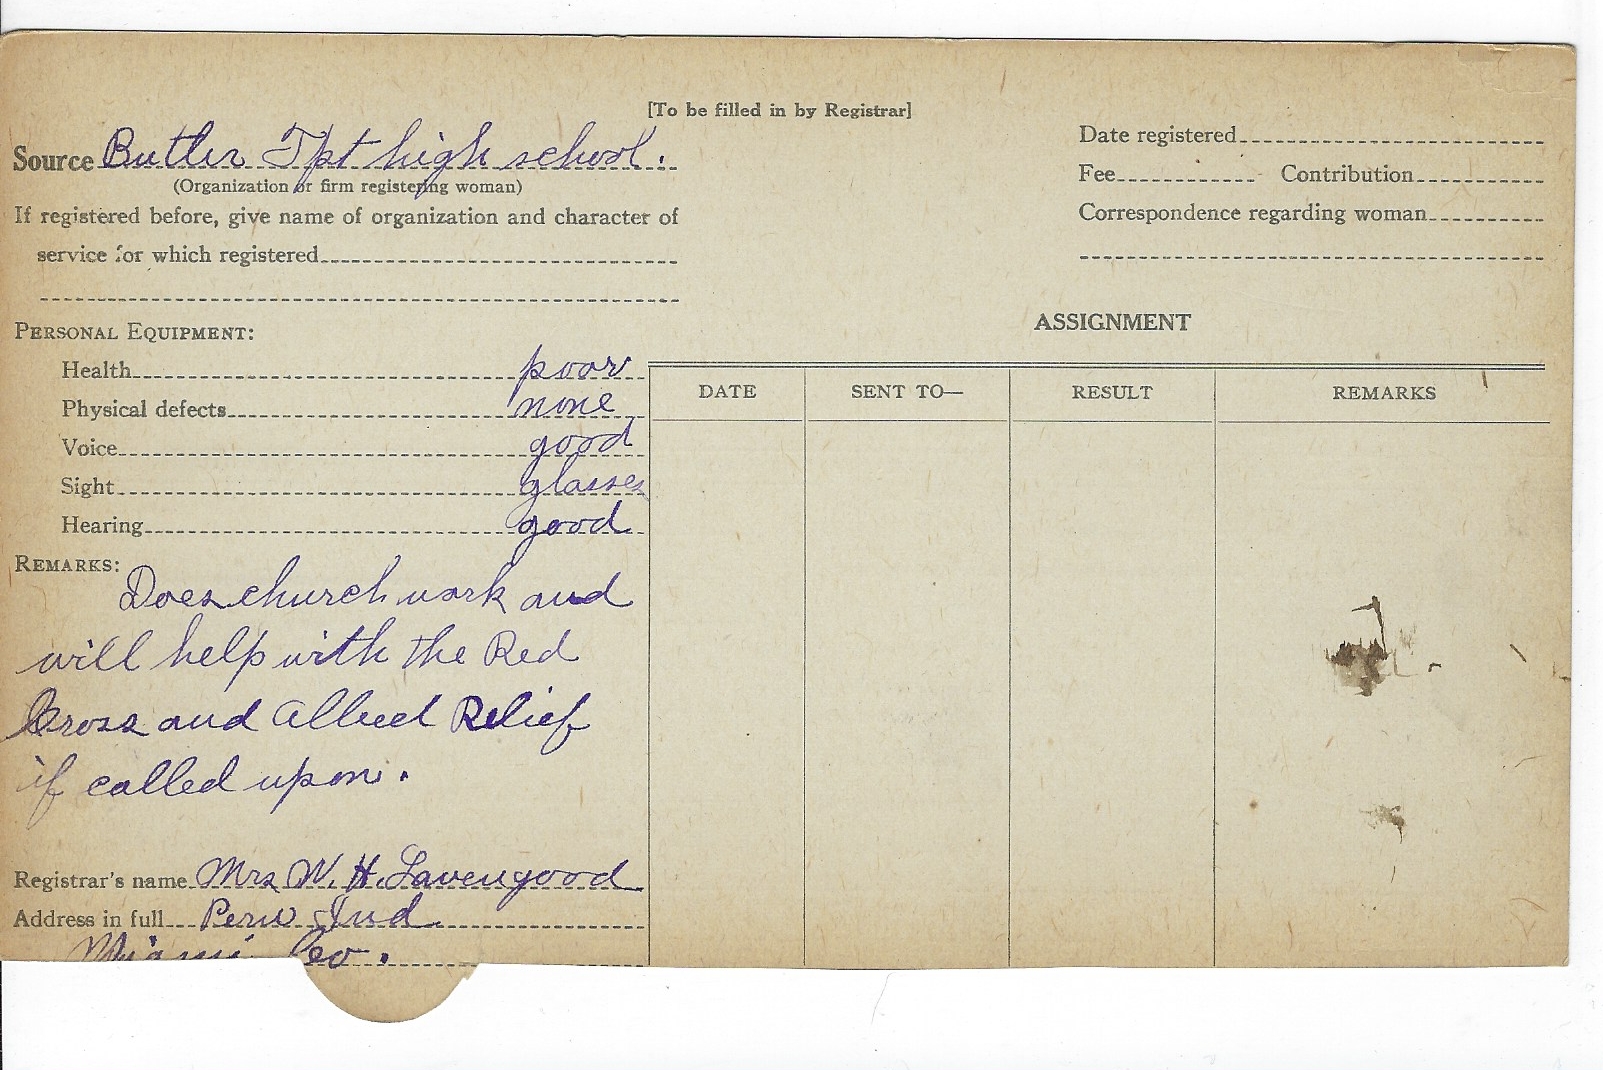 [To be filled in by Registrar]
Source Butler Tpt high school.
(Organization or firm registering woman)
If registered before, give name of organization and character of
service for which registered
Date registered
Fee Contribution
Correspondence regarding woman
PERSONAL EQUIPMENT:
Health poor
Physical defects none
Voice good
Sight glasses
Hearing good
REMARKS:
Does church work and
will help with the Red
Cross and Allied Relief
if called upon.
Registrar's name Mrs W. H. Lavengood
Address in full Peru Ind.
Miami Co.
ASSIGNMENT
DATE SENT TO— RESULT REMARKS